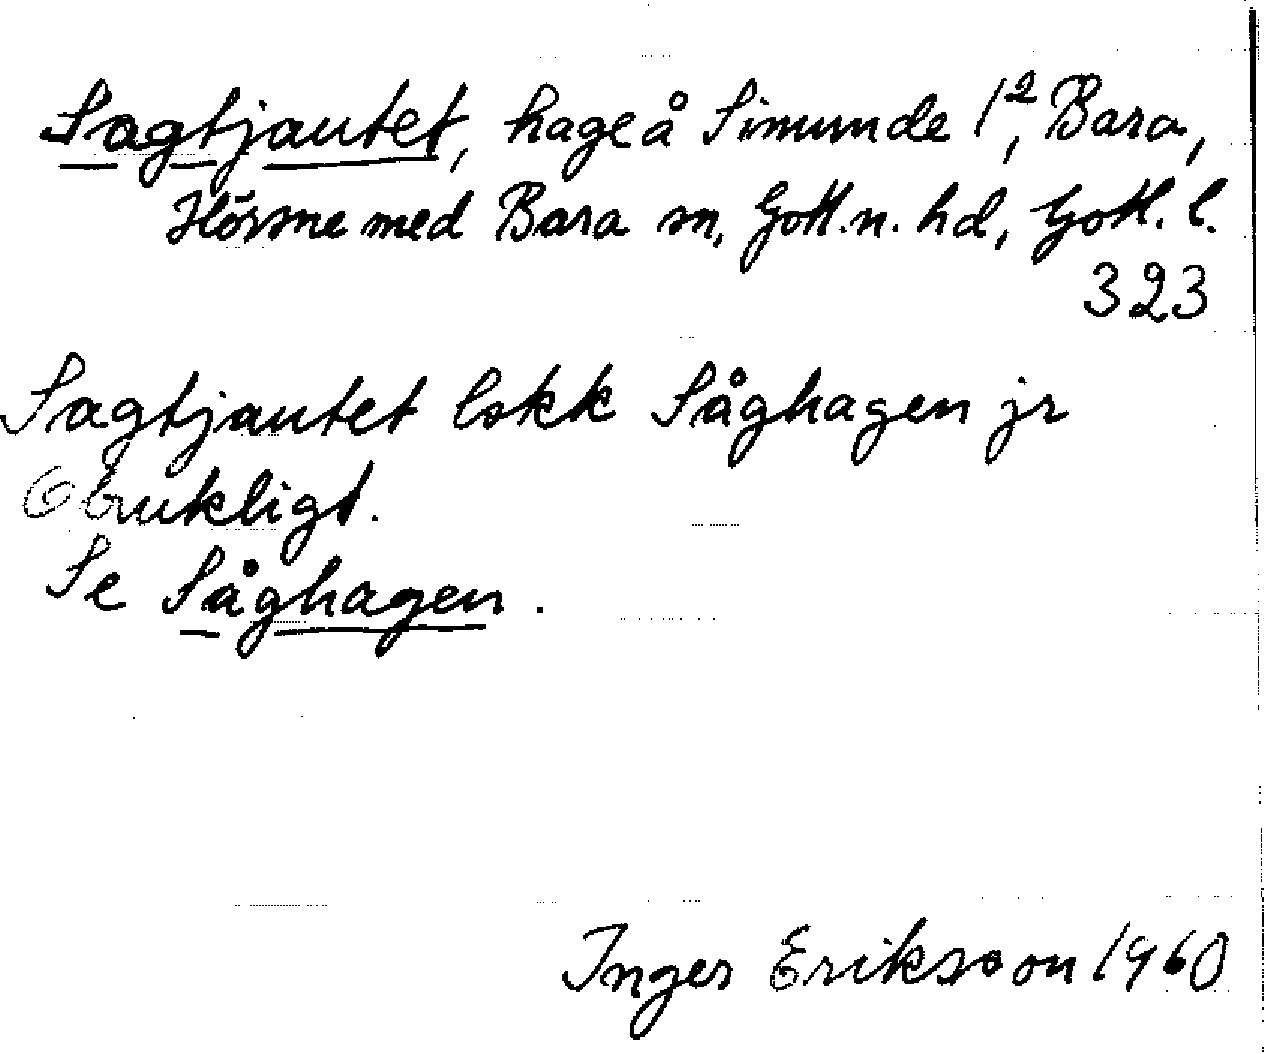 Sagtjautet, hage å Simunde 1², Bara,
Hörsne med Bara sn, Gotl. n. hd, Gotl. l.
323
Sagtjautet lskk Såghagen jr
Obrukligt.
Se Såghagen.
Inger Eriksson 1960